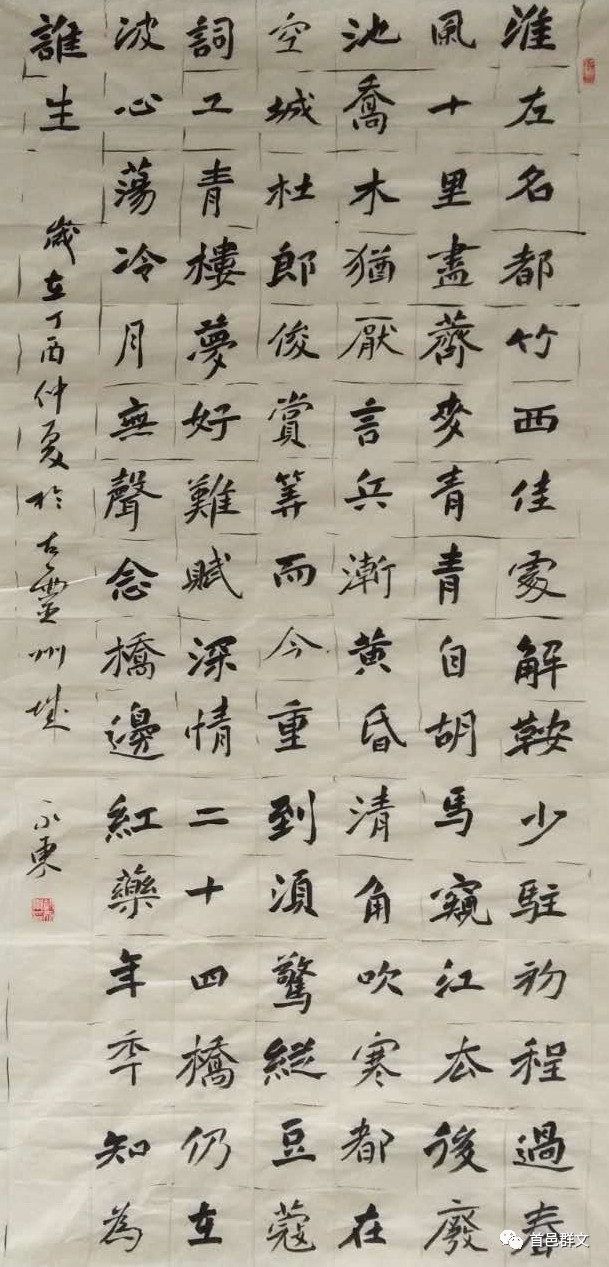 淮左名都竹西佳處解鞍少駐初程過春
風十里盡薺麥青青自胡馬窺江去後廢
池喬木猶厭言兵漸黃昏清角吹寒都在
空城杜郎俊賞算而今重到須驚縱豆蔻
詞工青樓夢好難賦深情二十四橋仍在
波心蕩冷月無聲念橋邊紅藥年年知為
誰生
歲在丁酉仲夏於古靈州城 永東
首邑群文